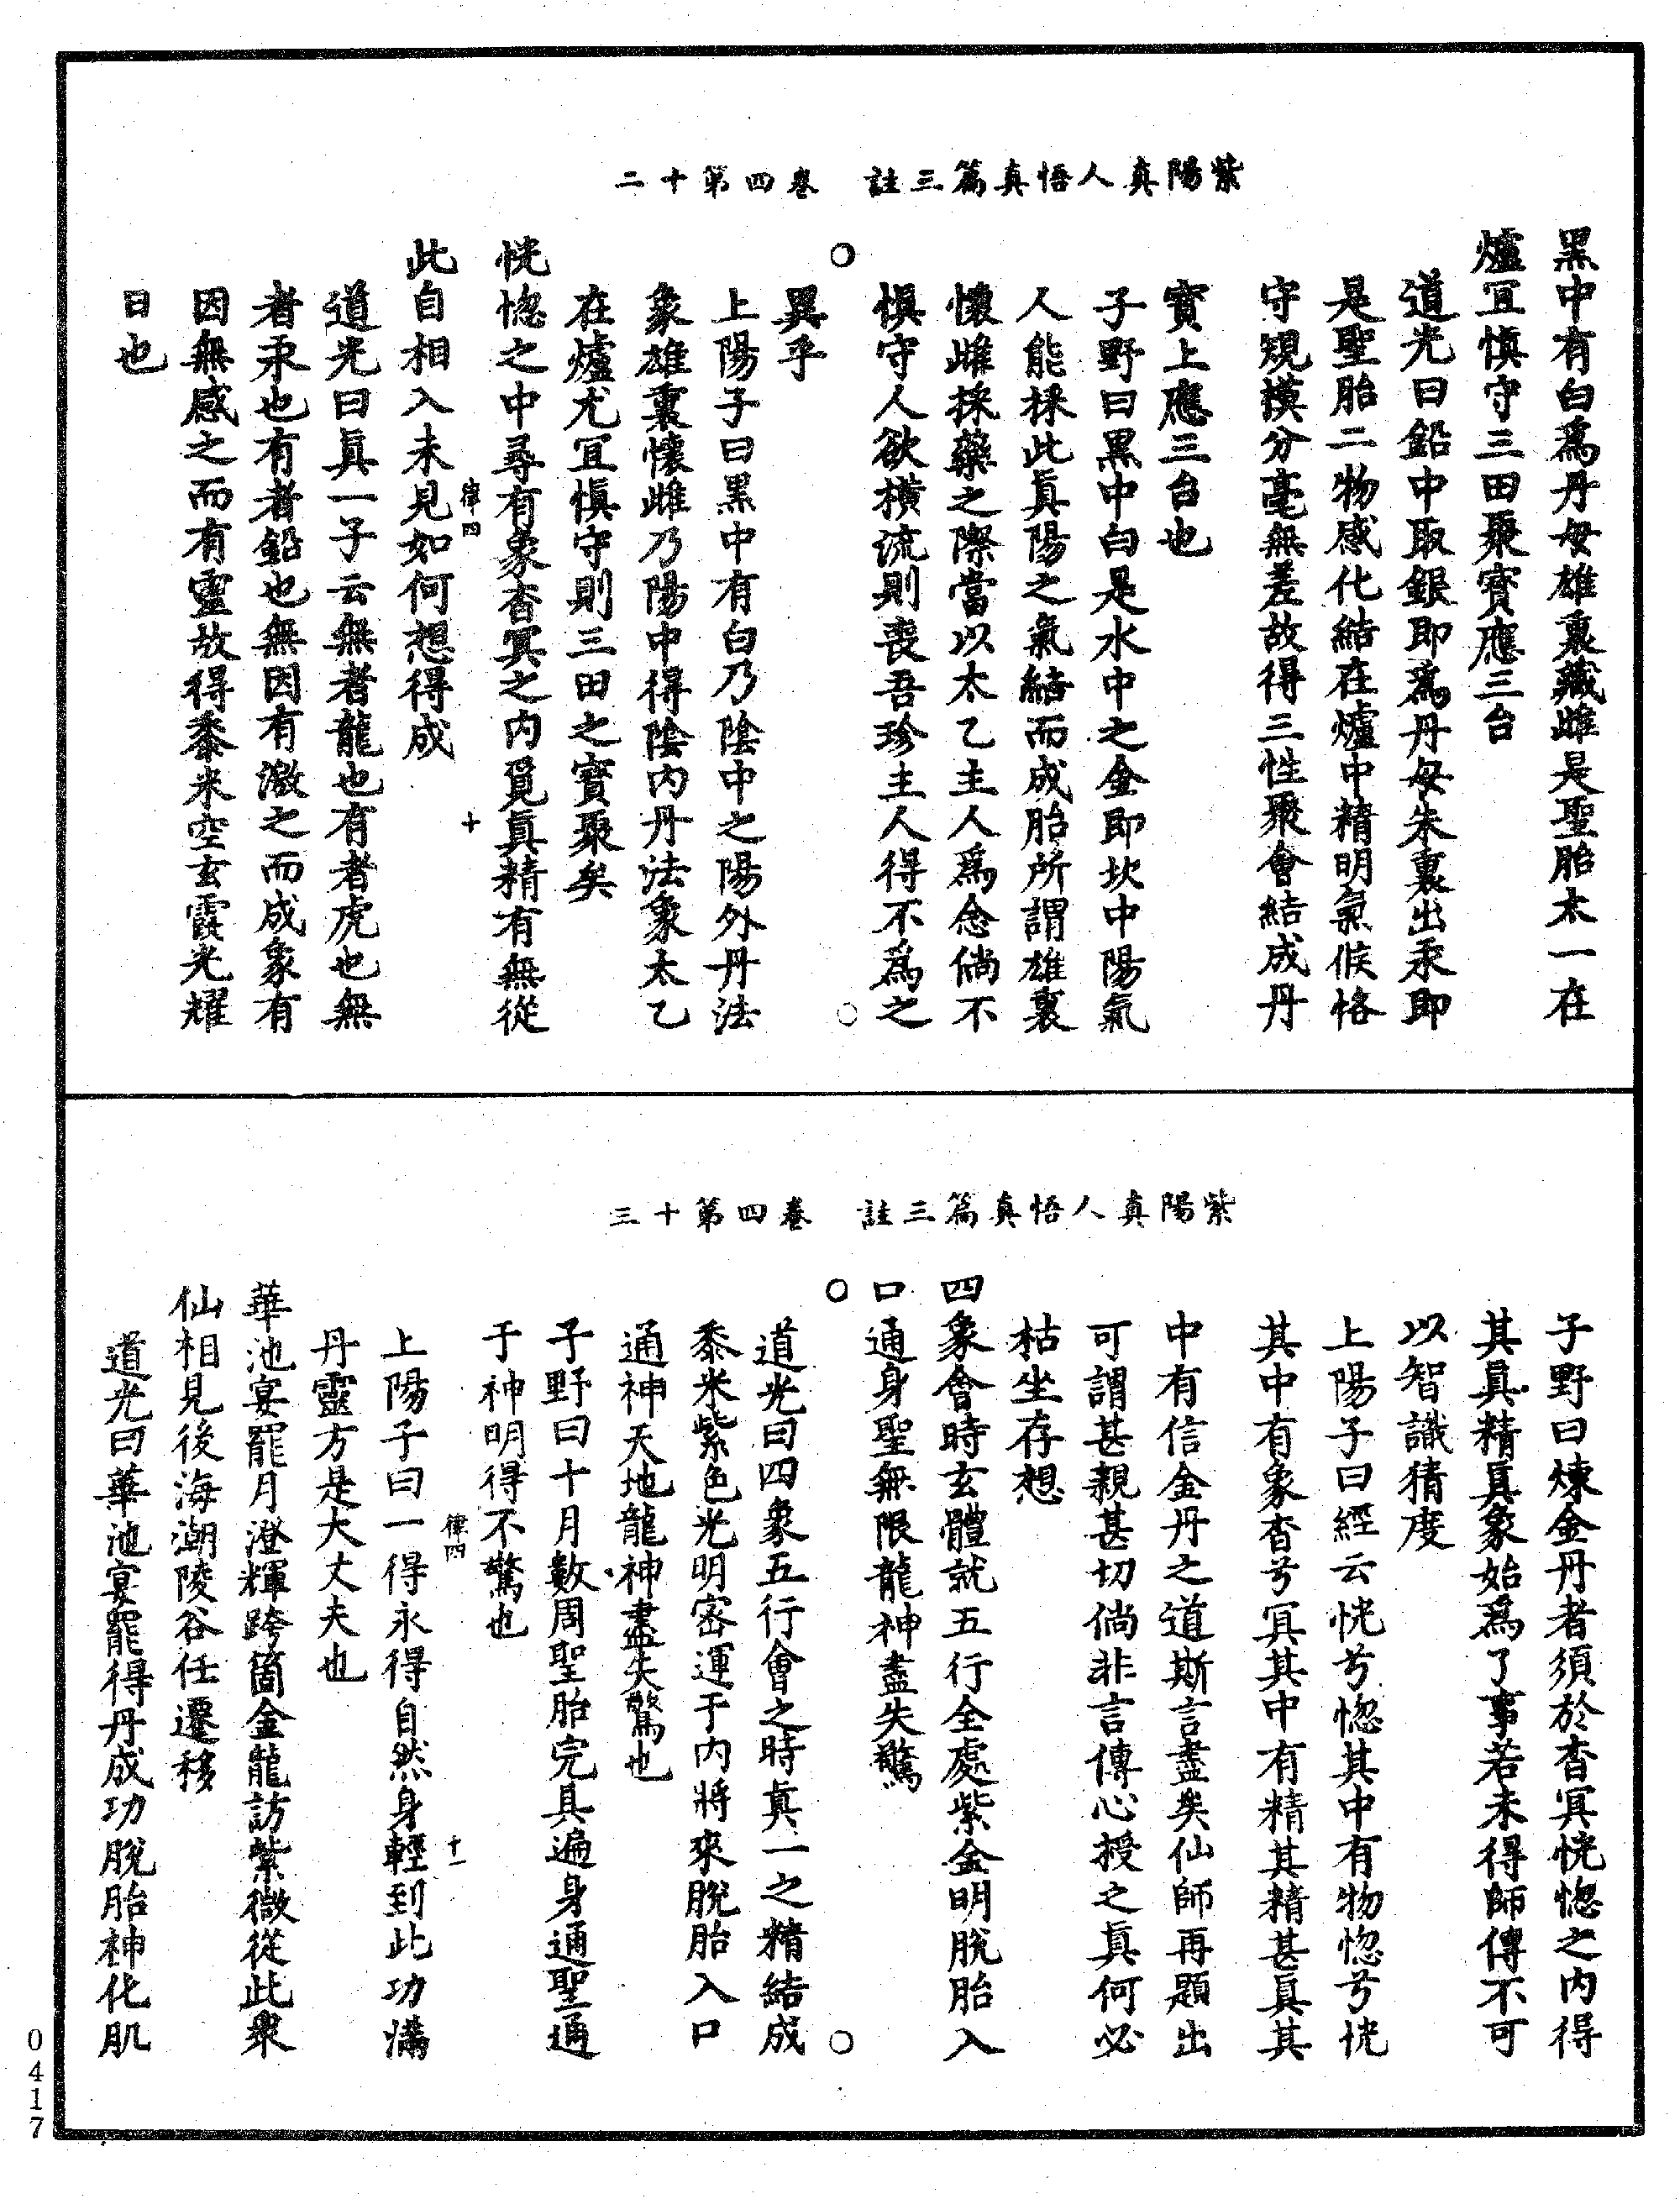 紫陽真人悟真篇三註　卷四第十二
黑中有白為丹母雄裏藏雌是聖胎太一在
爐冝慎守三田聚寳應三台
道光曰鉛中取銀即為丹母朱裏出汞即
是聖胎二物感化結在爐中精明氣候恪
守規模分毫無差故得三性聚會結成丹
寳上應三台也
子野曰黑中白是水中之金即坎中陽氣
人能採此眞陽之氣結而成胎所謂雄裏
懷雌採藥之際當以太乙主人為念倘不
慎守人欲橫流則喪吾珍主人得不為之
異乎
上陽子曰黑中有白乃陰中之陽外丹法
象雄裏懷雌乃陽中得陰内丹法象太乙
在爐尤冝慎守則三田之寳聚矣
恍惚之中尋有象杳冥之内覓眞精有無從
律四　十
此自相入未見如何想得成
道光曰眞一子云無者龍也有者虎也無
者汞也有者鉛也無因有激之而成象有
因無感之而有靈故得黍米空玄霞光耀
日也
紫陽真人悟真篇三註　卷四第十三
子野曰煉金丹者須於杳冥恍惚之内得
其眞精眞象始為了事若未得師傳不可
以智識猜度
上陽子曰經云恍兮惚其中有物惚兮恍
其中有象杳兮冥其中有精其精甚眞其
中有信金丹之道斯言盡矣仙師再題出
可謂甚親甚切倘非言傳心授之眞何必
枯坐存想
四象會時玄體就五行全處紫金明脫胎入
口通身聖無限龍神盡失驚
道光曰四象五行會之時眞一之精結成
黍米紫色光明密運于内將來脫胎入口
通神天地龍神盡失驚也
子野曰十月數周聖胎完具遍身通聖通
于神明得不驚也
律四　十一
上陽子曰一得永得自然身輕到此功滿
丹靈方是大丈夫也
華池宴罷月澄輝跨箇金龍訪紫微從此衆
仙相見後海潮陵谷任遷移
道光曰華池宴罷得丹成功脫胎神化肌
0417